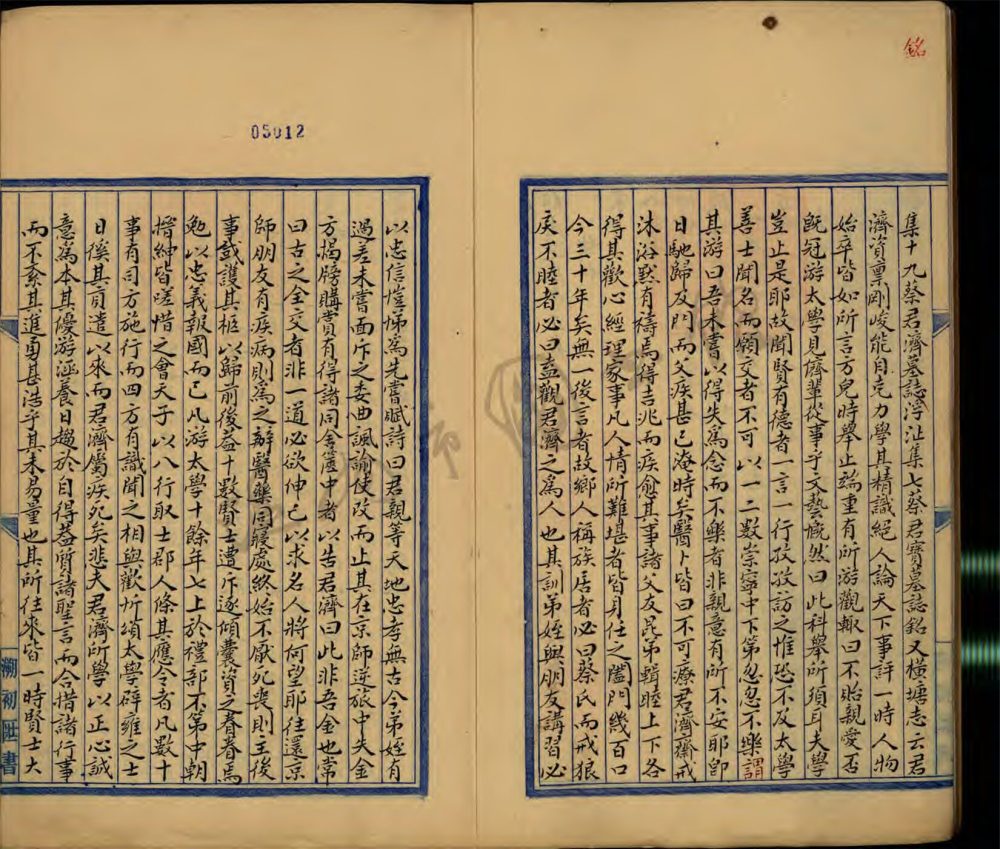 銘
集十九蔡君濟墓誌浮沚集七蔡君寶墓誌銘又橫塘志云君
濟資稟剛峻能自克力學其精識絕人論天下事評一時人物
始卒皆如所言方兒時舉止端重有所游觀輙曰不貽親愛否
既冠游太學見儕輩從事乎文藝慨然曰此科舉所須耳夫學
豈止是耶故聞賢有德者一言一行孜孜訪之惟恐不及太學
善士聞名而願交者不可以一二數崇寧中下第忽忽不樂謂
其游曰吾未嘗以得失為念而不樂者非親意有所不安耶卽
日馳歸及門而父疾甚已淹時矣醫卜皆曰不可療君濟齋戒
沐浴默有禱焉得吉兆而疾愈其事諸父友昆弟輯睦上下各
得其歡心經理家事凡人情所難堪者皆身任之闔門幾百口
今三十年矣無一後言者故鄉人稱族居者必曰蔡氏而戒狠
戾不睦者必曰盍觀君濟之為人也其訓弟姪與朋友講習必
以忠信愷悌為先嘗賦詩曰君親等天地忠孝無古今弟姪有
過差未嘗面斥之委曲諷諭使改而止其在京師逆旅中失金
方揭牓購賞有得諸同舍篋中者以告君濟曰此非吾金也常
曰古之全交者非一道必欲伸己以求名人將何望耶往還京
師朋友有疾病則為之辦醫藥同寢處終始不厭死喪則主後
事或護其柩以歸前後益十數賢士遭斥逐傾囊資之眷眷焉
勉以忠義報國而已凡游太學十餘年七上於禮部不第中朝
搢紳皆嗟惜之會天子以八行取士郡人條其應令者凡數十
事有司方施行而四方有識聞之相與歡忻頃太學辟雍之士
日徯其貢遣以來而君濟屬疾死矣悲夫君濟所學以正心誠
意為本其優游涵養日趨於自得葢質諸聖言而合措諸行事
而不紊其進勇甚浩乎其未易量也其所往來皆一時賢士大
05012